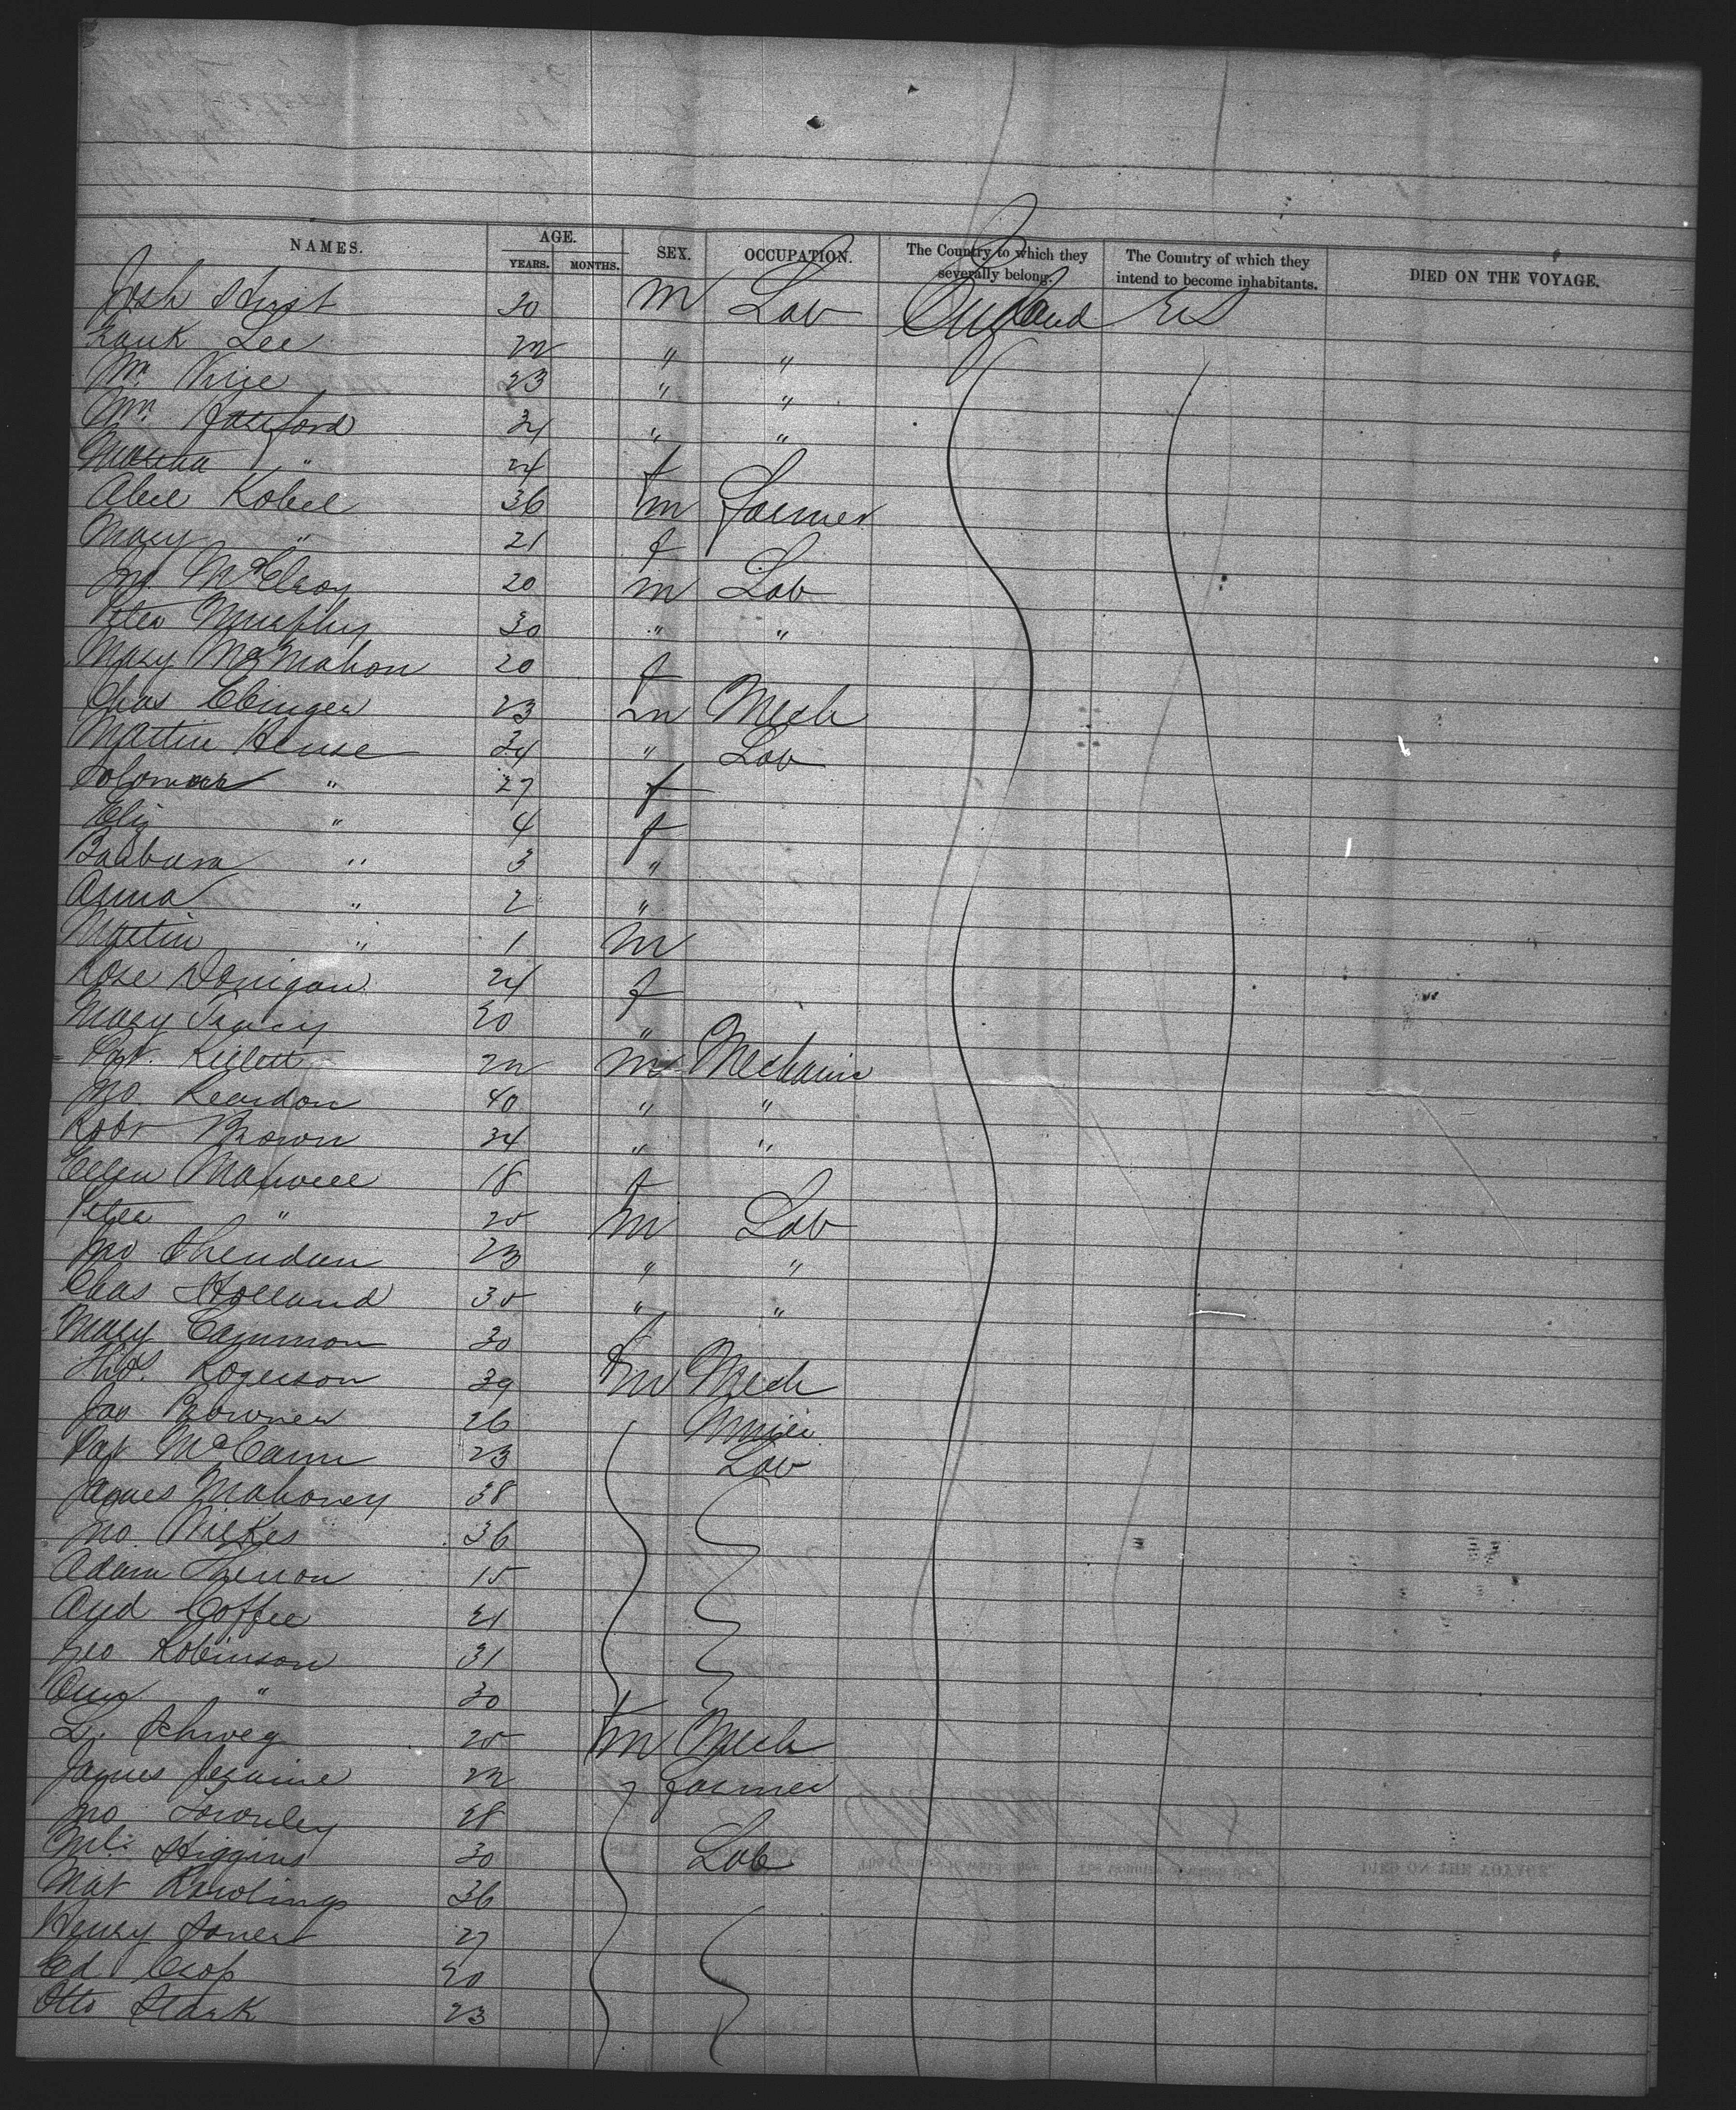 NAMES. AGE. SEX. OCCUPATION. The Country to which they severally belong. The Country of which they intend to become inhabitants. DIED ON THE VOYAGE.
YEARS. MONTHS.
Josh Hurst 30 m Lab England US
Frank Lee 22 " "
Wm 23 " "
Wm 34 " "
Martha " 24 f
Abel Kobel 36 m Farmer
Mary " 21 f
Jno. McElroy 20 m Lab
Peter Murphy 30 " "
Mary McMahon 20 f
Chas Ebinger 23 m Mech
Martin Hense 34 " Lab
" 27 f
Eliz " 4 f
Barbara " 3 "
Anna " 2 "
Martin " 1 m
Rose Donigan 24 f
Mary Tracy 20 "
Pat. Kellett 22 m Mechanic
Jno. Reardon 40 " "
Robt Brown 34 " "
Ellen Maxwell 18 f
Peter " 25 m Lab
Jno Sheridan 23 " "
Chas Holland 35 " "
Mary Cammon 30 f
Thos. Rogerson 39 m Mech
Jas 26 Miner
Pat McCann 23 Lab
James Mahoney 38
Jno. Wilkes 36
Adam Herron 15
And Coffee 21
Geo Robinson 31
" 30 f
L. Schweg 25 m Mech
James 22 Farmer
Jno Townley 28
Ml. Higgins 30 Lab
Mat Rawlings 36
Henry Jones 27
Ed 20
Otto Stark 23